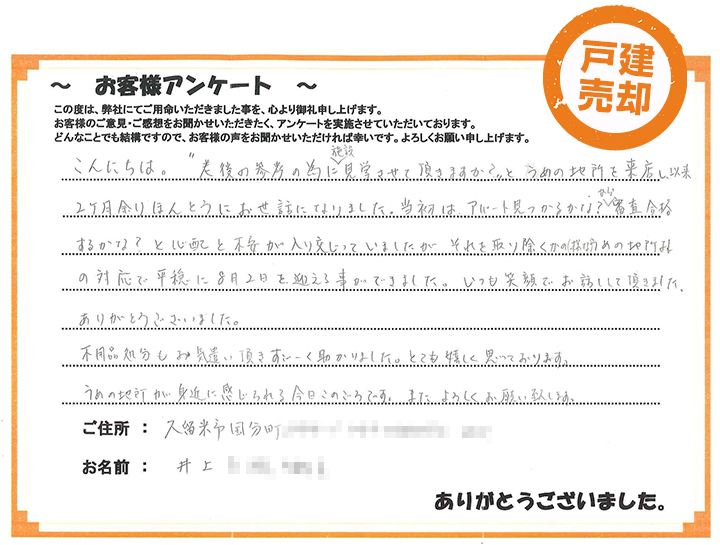 戸建
売却
～ お客様アンケート ～
この度は、弊社にてご用命いただきました事を、心より御礼申し上げます。
お客様のご意見・ご感想をお聞かせいただきたく、アンケートを実施させていただいております。
どんなことでも結構ですので、お客様の声をお聞かせいただければ幸いです。よろしくお願い申し上げます。
施設
こんにちは。"老後の参考の為に見学させて頂きますか?"と うめの地所を来店し以来
から
2ヶ月余りほんとうにお世話になりました。当初は、アパート見つかるかな?審査合格
するかな?と心配と不安が入り交じっていましたが それを取り除くかの様なうめの地所さん
の対応で平穏に8月2日を迎える事ができました。いつも笑顔でお話しして頂きました、
ありがとうございました。
不用品処分もお気遣い頂きすご〜く助かりました。とても嬉しく思っております。
うめの地所が身近に感じられる今日このごろです。また よろしくお願い致します。
ご住所 : 久留米市国分町
お名前 : 井上
ありがとうございました。